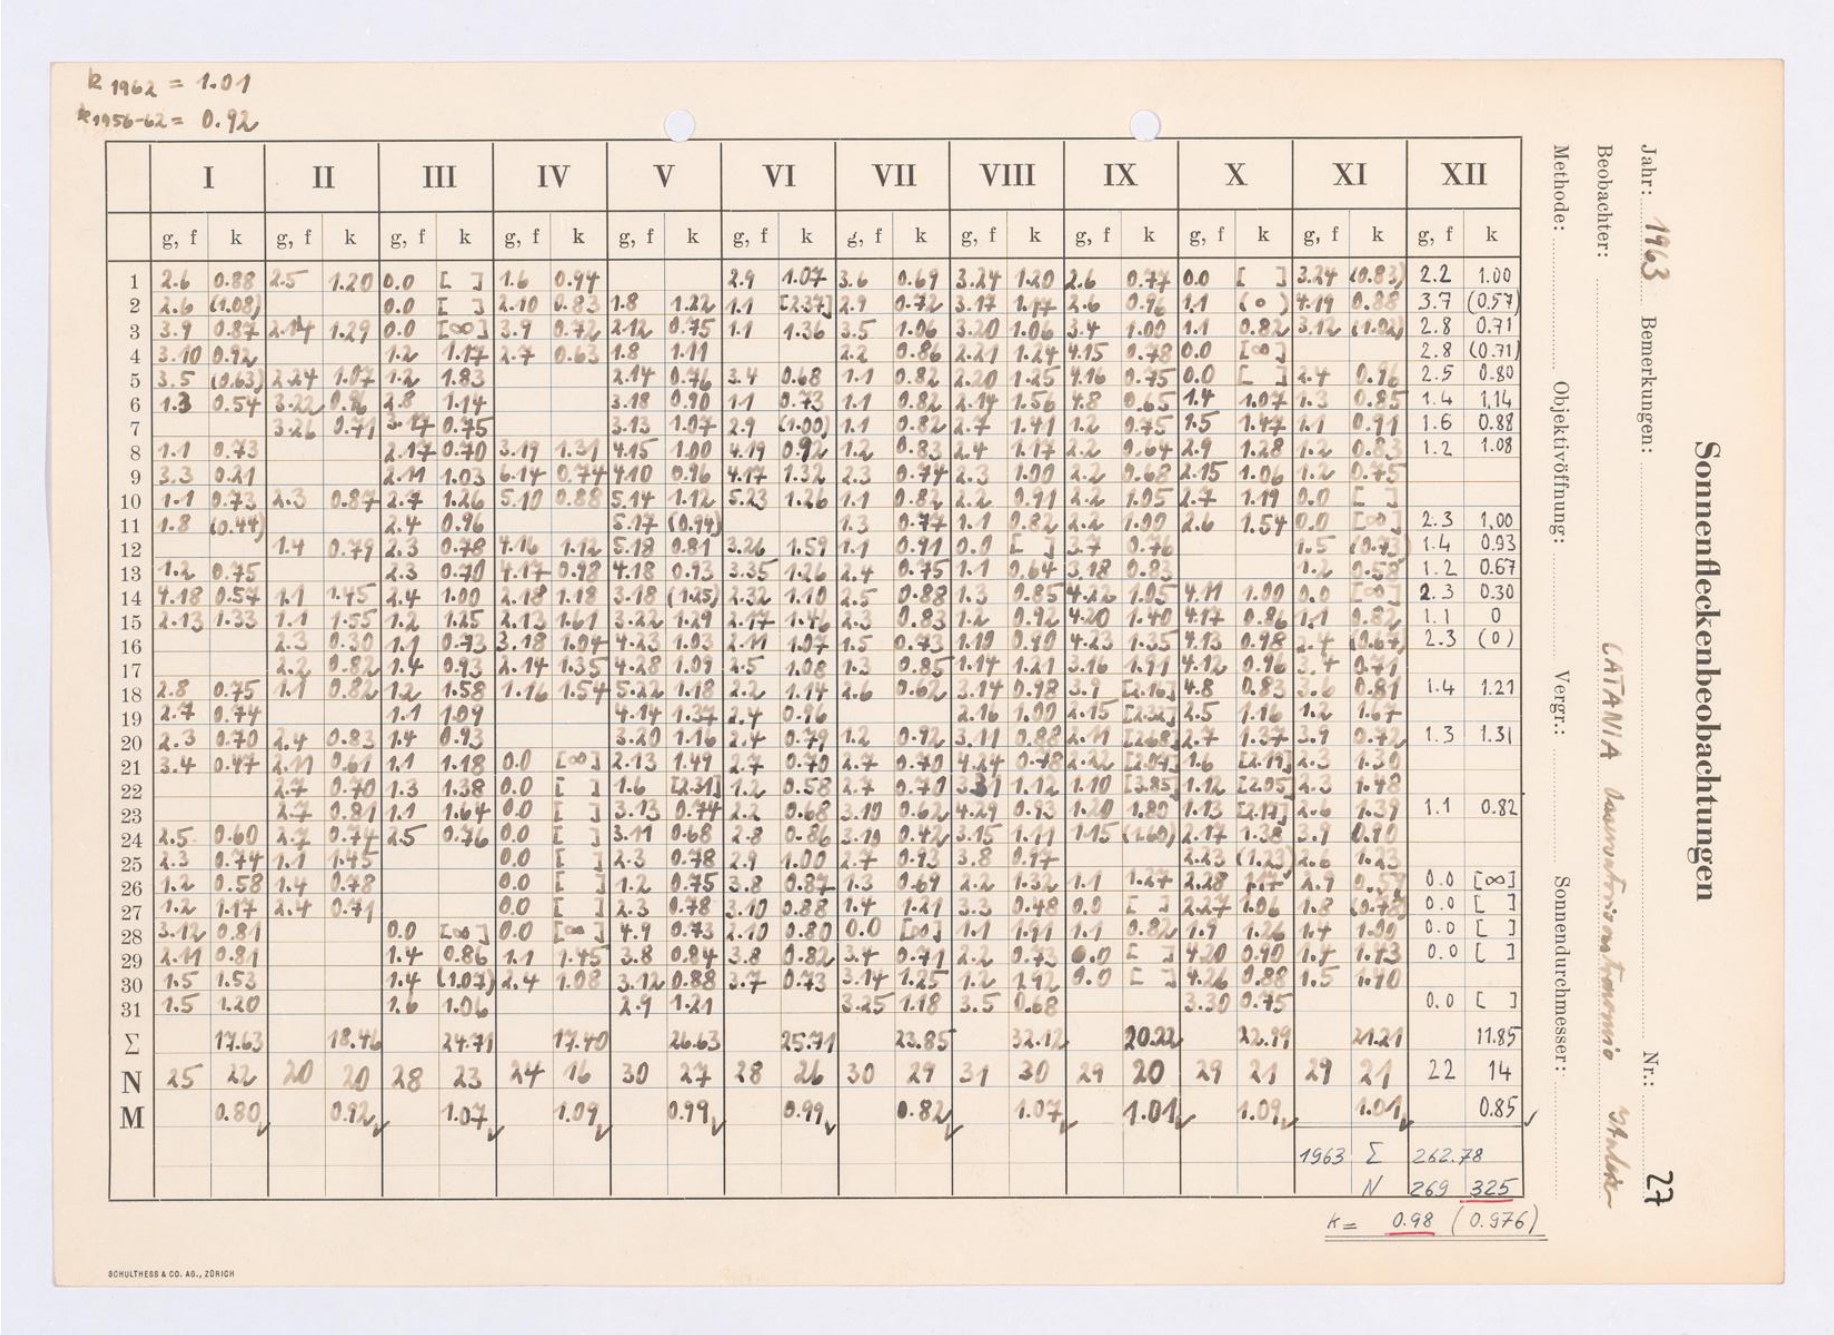 k 1962 = 1.01
k 1956-62 = 0.92
I II III IV V VI VII VIII IX X XI XII
g, f k g, f k g, f k g, f k g, f k g, f k g, f k g, f k g, f k g, f k g, f k g, f k
1 2.6 0.88 2.5 1.20 0.0 [ ] 1.6 0.94 2.9 1.07 3.6 0.69 3.24 1.20 2.6 0.77 0.0 [ ] 3.24 (0.83) 2.2 1.00
2 2.6 (1.08) 0.0 [ ] 2.10 0.83 1.8 1.22 1.1 [2.37] 2.9 0.72 3.17 1.17 2.6 0.96 1.1 (0) 4.19 0.88 3.7 (0.57)
3 3.9 0.87 2.14 1.29 0.0 [∞] 3.9 0.72 2.12 0.75 1.1 1.36 3.5 1.06 3.20 1.06 3.4 1.00 1.1 0.82 3.12 (1.02) 2.8 0.71
4 3.10 0.92 1.2 1.17 2.7 0.63 1.8 1.11 2.2 0.86 2.21 1.24 4.15 0.78 0.0 [∞] 2.8 (0.71)
5 3.5 (0.63) 2.24 1.07 1.2 1.83 2.14 0.76 3.4 0.68 1.1 0.82 2.20 1.25 4.16 0.75 0.0 [ ] 2.4 0.96 2.5 0.80
6 1.3 0.54 3.22 0.96 2.8 1.14 3.18 0.90 1.1 0.73 1.1 0.82 2.14 1.56 4.8 0.65 1.4 1.07 1.3 0.85 1.4 1.14
7 3.26 0.71 3.17 0.75 3.13 1.07 2.9 (1.00) 1.1 0.82 2.7 1.41 1.2 0.75 1.5 1.47 1.1 0.91 1.6 0.88
8 1.1 0.73 2.17 0.70 3.19 1.31 4.15 1.00 4.19 0.92 1.2 0.83 2.4 1.17 2.2 0.64 2.9 1.28 1.2 0.83 1.2 1.08
9 3.3 0.21 2.11 1.03 6.14 0.74 4.10 0.96 4.17 1.32 2.3 0.74 2.3 1.00 2.2 0.68 2.15 1.06 1.2 0.75
10 1.1 0.73 2.3 0.87 2.7 1.26 5.10 0.88 5.14 1.12 5.23 1.26 1.1 0.82 2.2 0.91 2.2 1.05 2.7 1.19 0.0 [ ]
11 1.8 (0.44) 2.4 0.96 5.17 (0.94) 1.3 0.77 1.1 0.82 2.2 1.00 2.6 1.54 0.0 [∞] 2.3 1.00
12 1.4 0.79 2.3 0.78 4.16 1.12 5.18 0.81 3.26 1.59 1.1 0.91 0.0 [ ] 3.7 0.76 1.5 (0.73) 1.4 0.93
13 1.2 0.75 2.3 0.70 4.17 0.98 4.18 0.93 3.35 1.26 2.4 0.75 1.1 0.64 3.18 0.83 1.2 0.58 1.2 0.67
14 4.18 0.57 1.1 1.45 2.4 1.00 2.18 1.18 3.18 (1.25) 2.32 1.10 2.5 0.88 1.3 0.85 4.22 1.05 4.11 1.00 0.0 [∞] 2.3 0.30
15 2.13 1.33 1.1 1.55 1.2 1.25 2.13 1.61 3.22 1.29 2.17 1.46 2.3 0.83 1.2 0.92 4.20 1.40 4.17 0.86 1.1 0.82 1.1 0
16 2.3 0.30 1.1 0.73 3.18 1.04 4.23 1.03 2.11 1.07 1.5 0.73 1.10 0.90 4.23 1.35 4.13 0.98 2.4 (0.67) 2.3 (0)
17 2.2 0.82 1.4 0.93 2.14 1.35 4.28 1.09 2.5 1.08 1.3 0.85 1.14 1.21 3.16 1.91 4.12 0.96 3.4 0.71
18 2.8 0.75 1.1 0.82 1.2 1.58 1.16 1.54 5.22 1.18 2.2 1.14 2.6 0.62 3.14 0.98 3.9 [2.16] 4.8 0.83 3.6 0.81 1.4 1.21
19 2.7 0.74 1.1 1.09 4.14 1.37 2.4 0.96 2.16 1.00 2.15 [2.32] 2.5 1.16 1.2 1.67
20 2.3 0.70 2.4 0.83 1.4 0.93 3.20 1.16 2.4 0.79 1.2 0.92 3.11 0.88 2.11 [2.68] 2.7 1.37 3.9 0.72 1.3 1.31
21 3.4 0.47 2.11 0.61 1.1 1.18 0.0 [∞] 2.13 1.49 2.7 0.70 2.7 0.70 4.24 0.78 2.22 [2.04] 1.6 [2.19] 2.3 1.30
22 2.7 0.70 1.3 1.38 0.0 [ ] 1.6 [2.31] 1.2 0.58 2.7 0.70 3.31 1.12 1.10 [3.85] 1.12 [2.05] 2.3 1.48
23 2.7 0.81 1.1 1.64 0.0 [ ] 3.13 0.74 2.2 0.68 3.10 0.62 4.29 0.93 1.20 1.80 1.13 [2.17] 2.6 1.39 1.1 0.82
24 2.5 0.60 2.7 0.74 2.5 0.76 0.0 [ ] 3.11 0.68 2.8 0.86 3.19 0.42 3.15 1.11 1.15 (1.60) 2.17 1.38 3.9 0.90
25 2.3 0.74 1.1 1.45 0.0 [ ] 2.3 0.78 2.9 1.00 2.7 0.93 3.8 0.97 2.23 (1.23) 2.6 1.23
26 1.2 0.58 1.4 0.78 0.0 [ ] 1.2 0.75 3.8 0.87 1.3 0.69 2.2 1.32 1.1 1.27 2.28 1.17 2.9 0.57 0.0 [∞]
27 1.2 1.17 2.4 0.71 0.0 [ ] 2.3 0.78 3.10 0.88 1.4 1.21 3.3 0.48 0.0 [ ] 2.27 1.06 1.8 (0.78) 0.0 [ ]
28 3.12 0.81 0.0 [∞] 0.0 [∞] 4.9 0.73 2.10 0.80 0.0 [∞] 1.1 1.91 1.1 0.82 1.9 1.26 1.4 1.00 0.0 [ ]
29 2.11 0.81 1.4 0.86 1.1 1.45 3.8 0.84 3.8 0.82 3.4 0.71 2.2 0.73 0.0 [ ] 4.20 0.90 1.4 1.43 0.0 [ ]
30 1.5 1.53 1.4 (1.07) 2.4 1.08 3.12 0.88 3.7 0.73 3.14 1.25 1.2 1.92 0.0 [ ] 4.26 0.88 1.5 1.40
31 1.5 1.20 1.6 1.06 2.9 1.21 3.25 1.18 3.5 0.68 3.30 0.75 0.0 [ ]
Σ 17.63 18.46 24.71 17.40 26.63 25.71 23.85 32.12 20.22 22.99 21.21 11.85
N 25 22 20 20 28 23 24 16 30 27 28 26 30 29 31 30 29 20 29 21 29 21 22 14
M 0.80 0.92 1.07 1.09 0.99 0.99 0.82 1.07 1.01 1.09 1.01 0.85
1963 Σ 262.78
N 269 325
k = 0.98 (0.976)
SCHULTHESS & CO. AG., ZÜRICH
Sonnenfleckenbeobachtungen
Jahr: 1963 Bemerkungen: Nr.: 27
Beobachter: CATANIA
Methode: Objektivöffnung: Vergr.: Sonnendurchmesser: